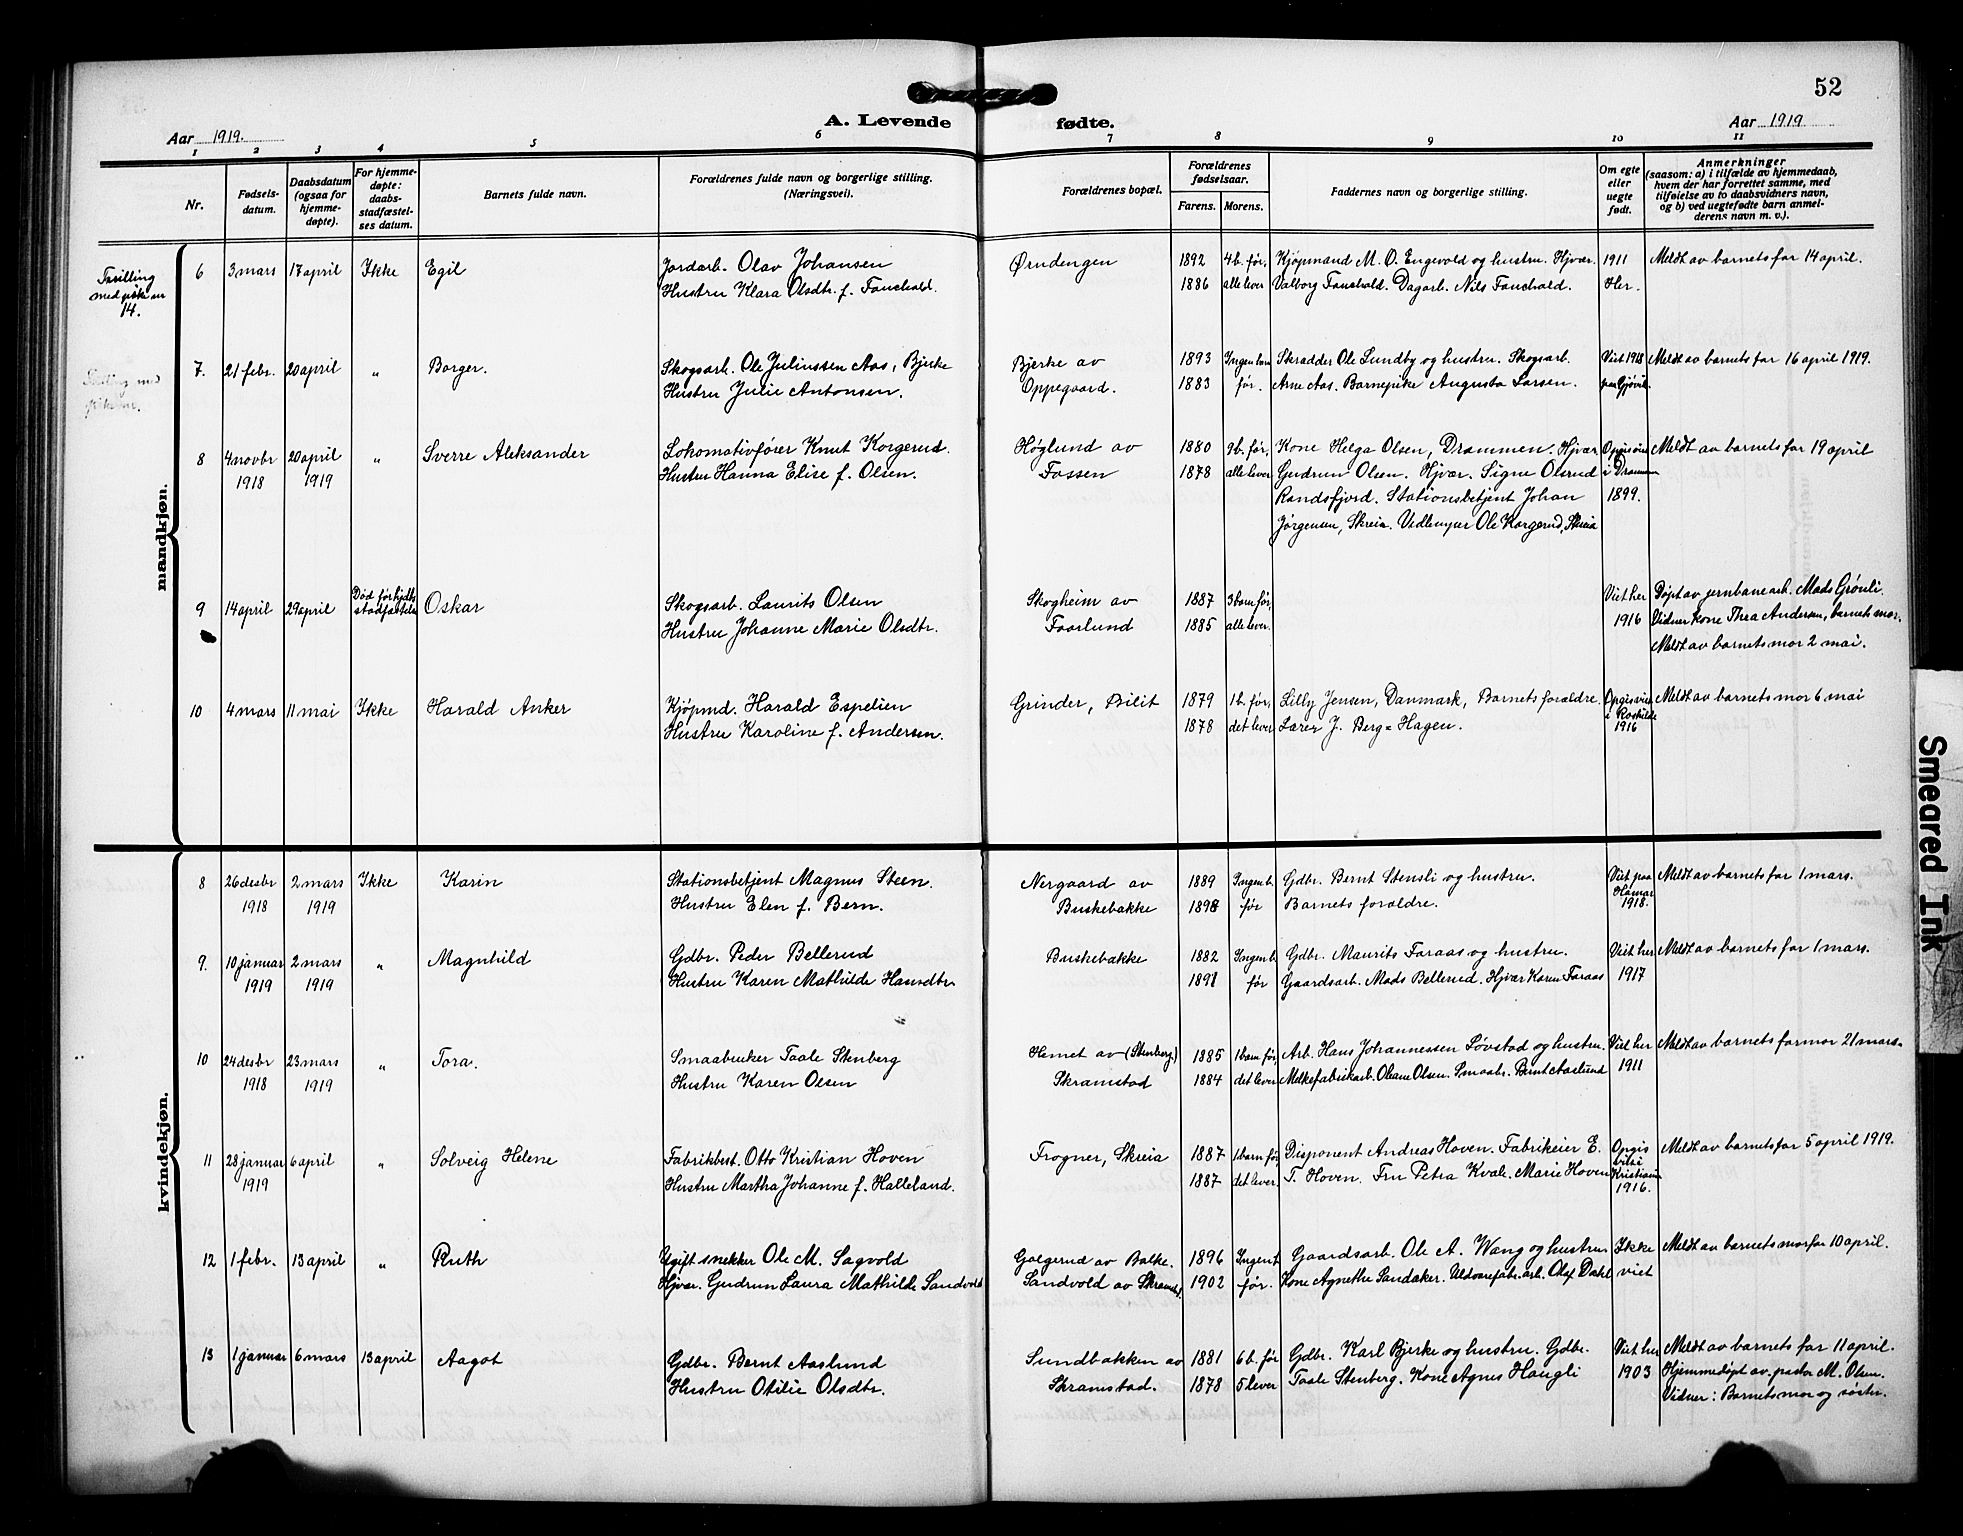 52
A. Levende fødte.
Aar 1919.
Aar 1919
1 2 3 4 5 6 7 8 9 10 11
Nr.
Fødsels-
datum.
Daabsdatum
(ogsaa for
hjemme-
døpte).
For hjemme-
døpte:
daabs-
stadfæstel-
ses datum.
Barnets fulde navn.
Forældrenes fulde navn og borgerlige stilling.
(Næringsvei).
Forældrenes bopæl.
Forældrenes
fødselsaar.
Farens. Morens.
Faddernes navn og borgerlige stilling.
Om egte
eller
uegte
født.
Anmerkninger
(saasom: a) i tilfælde av hjemmedaab,
hvem der har forrettet samme, med
tilføielse av to daabsvidners navn,
og b) ved uegtefødte barn anmel-
derens navn m. v.).
mandkjøn.
Tvilling
med pike nr
14.
6 3 mars 17 april Ikke Egil
Jordarb. Olav Johansen
Hustru Klara Olsdtr. f. Fauchald.
Ørndengen
1892 4 b. før,
1886 alle lever
Kjøpmand M. O. Engevold og hustru. Hjvær.
Valborg Fauchald. Dagarb. Nils Fauchald.
1911
Her.
Meldt av barnets far 14 april.
7. 21 febr. 20 april " Borger.
Skogsarb. Ole Juliussen Aas, Bjerke
Hustru Julie Antonsen.
Bjerke av
Oppegaard.
1893 Ingen barn
1883 før.
Skrædder Ole Lundby og hustru. Skogsarb.
Arne Aas. Barnepike Augusta Larsen.
Viet 1918
paa Gjøvik.
Meldt av barnets far 16 april 1919.
8 4 novbr 20 april " Sverre Aleksander
1918 1919
Lokomotivfører Knut Korgerud.
Hustru Hanna Elise f. Olsen.
Høglund av
Fossen
1880 9 b. før,
1878 alle lever
Kone Helga Olsen, Drammen. Hjvær
Gudrun Olsen. Hjvær. Signe Olsrud
Randsfjord. Stationsbetjent Johan
Jørgensen, Skreia. Vedlemper Ole Korgerud, Skreia
i Drammen
1899.
Meldt av barnets far 19 april
9 14 april 29 april Død før hjdb. stadfæstels Oskar
Skogsarb. Laurits Olsen
Hustru Johanne Marie Olsdtr.
Skogheim av
Faarlund
1887 3 barn før
1885 alle lever.
Viet her
1916
Døpt av jernbanearb. Mads Grønli.
Vidner kone Thea Andersen, barnets mor.
Meldt av barnets mor 2 mai.
10 4 mars 11 mai Ikke Harald Anker
Kjøpmd. Harald Espelien
Hustru Karoline f. Andersen.
Grinder, Bilit
1879 1 b. før,
1878 det lever
Lilly Jensen, Danmark, Barnets forældre.
Lærer J. Berg=Hagen.
Opgis viet
i Roskilde
1916
Meldt av barnets mor 6 mai
kvindekjøn.
8 26 desbr 2 mars Ikke Karin
1918 1919
Stationsbetjent Magnus Steen.
Hustru Elen f. Bern.
Nergaard av
Buskebakke
1889 Ingen b.
1898 før
Gdbr. Bernt Stensli og hustru.
Barnets forældre.
Viet paa
Hamar
1918.
Meldt av barnets far 1 mars.
9. 10 januar 2 mars " Magnhild
1919 1919
Gdbr. Peder Bellerud
Hustru Karen Mathilde Hansdtr
Buskebakke
1882 Ingen b.
1891 før
Gdbr. Maurits Faraas og hustru.
Gaardsarb. Mads Bellerud. Hjvær Karen Faraas
Viet her
1917
Meldt av barnets far 1 mars.
10 24 desbr 23 mars " Tora.
1918 1919
Smaabruker Taale Stenberg
Hustru Karen Olsen
Hemet av (Stenberg)
Skramstad
1885 1 barn før
1884 det lever
Arb. Hans Johannessen Løvstad og hustru.
Melkefabrikarb. Oleane Olsen. Smaabr. Bernt Aaslund
Viet her
1911
Meldt av barnets farmor 21 mars.
11 28 januar 6 april " Solveig Helene
1919
Fabrikbest. Otto Kristian Hoven
Hustru Martha Johanne f. Halleland.
Frogner, Skreia
1887 1 barn før,
1887 det lever.
Disponent Andreas Hoven. Fabrikeier E.
T. Hoven. Fru Petra Kvale. Marie Hoven
Opgis
viet i
Kristiania
1916.
Meldt av barnets far 5 april 1919.
12 1 febr. 13 april " Ruth
Ugift snekker Ole M. Sagvold
Hjvær. Gudrun Laura Mathilde Sandvold
Galgerud av Balke.
Sandvold av Skramst.
1896 Ingen b.
1902 før.
Gaardsarb. Ole A. Wang og hustru
Kone Agnethe Sandaker. Uldvarefabr. arb. Olaf Dahl
Ikke
viet
Meldt av barnets morfar 10 april.
13 1 januar 6 mars 13 april Aagot
Gdbr. Bernt Aaslund
Hustru Otilie Olsdtr.
Sundbakken av
Skramstad.
1881 6 b. før
1878 5 lever
Gdbr. Karl Bjerke og hustru. Gdbr.
Taale Stenberg. Kone Agnes Haugli
Viet her
1903
Meldt av barnets far 11 april.
Hjemmedøpt av prædor M. Olsen.
Vidner: Barnets mor og søster.
Smeared Ink